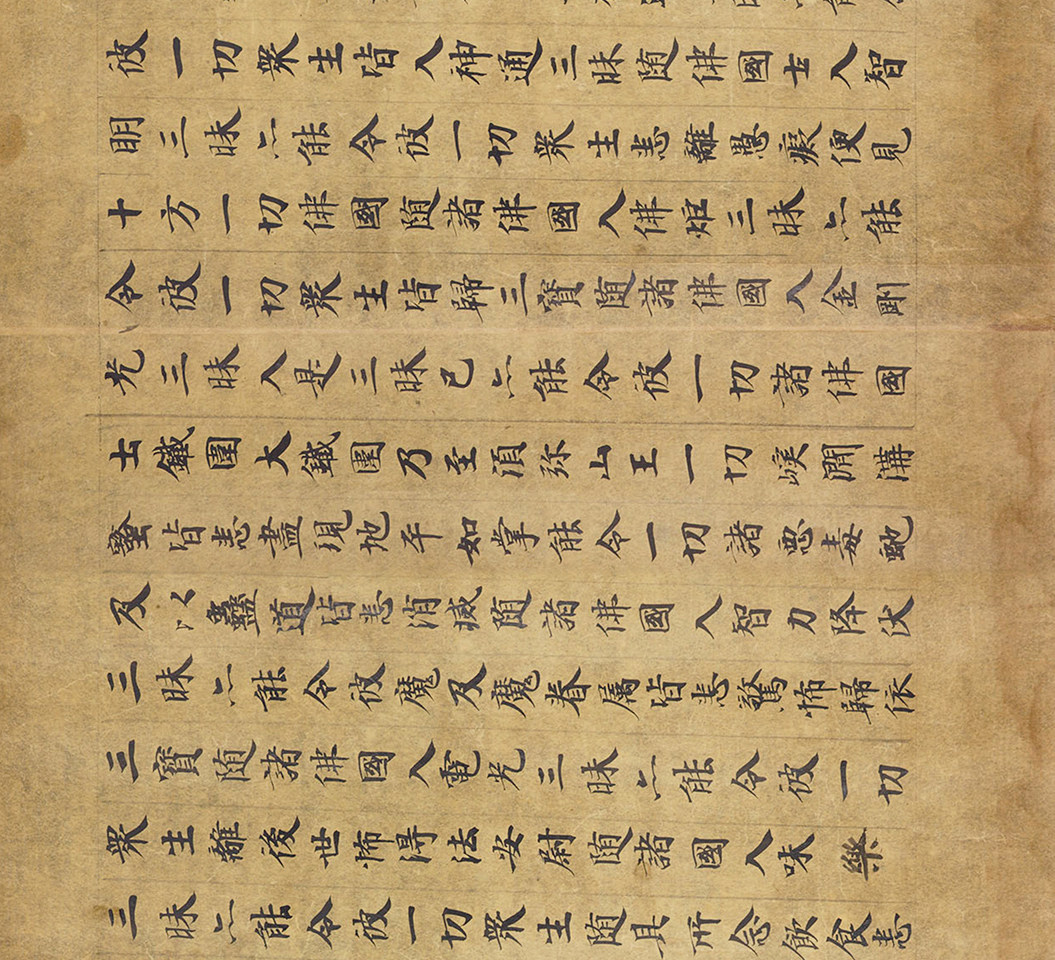 彼一切衆生皆入神通三昧随佛國土入智
明三昧亦能令彼一切衆生悉離愚癡便見
十方一切佛國随諸佛國入佛炬三昧亦能
令彼一切衆生皆歸三寶随諸佛國入金剛
光三昧入是三昧已亦能令彼一切諸佛國
土鐵圍大鐵圍乃至湏弥山王一切嵠澗溝
壑皆悉盡現地平如掌能令一切諸惡毒虵
及以蠱道皆悉消滅随諸佛國入智力降伏
三昧亦能令彼魔及魔眷属皆悉驚怖歸依
三寶随諸佛國入電光三昧亦能令彼一切
衆生離後世怖得法安尉随諸國入味樂
三昧亦能令彼一切衆生随其所念飲食悉